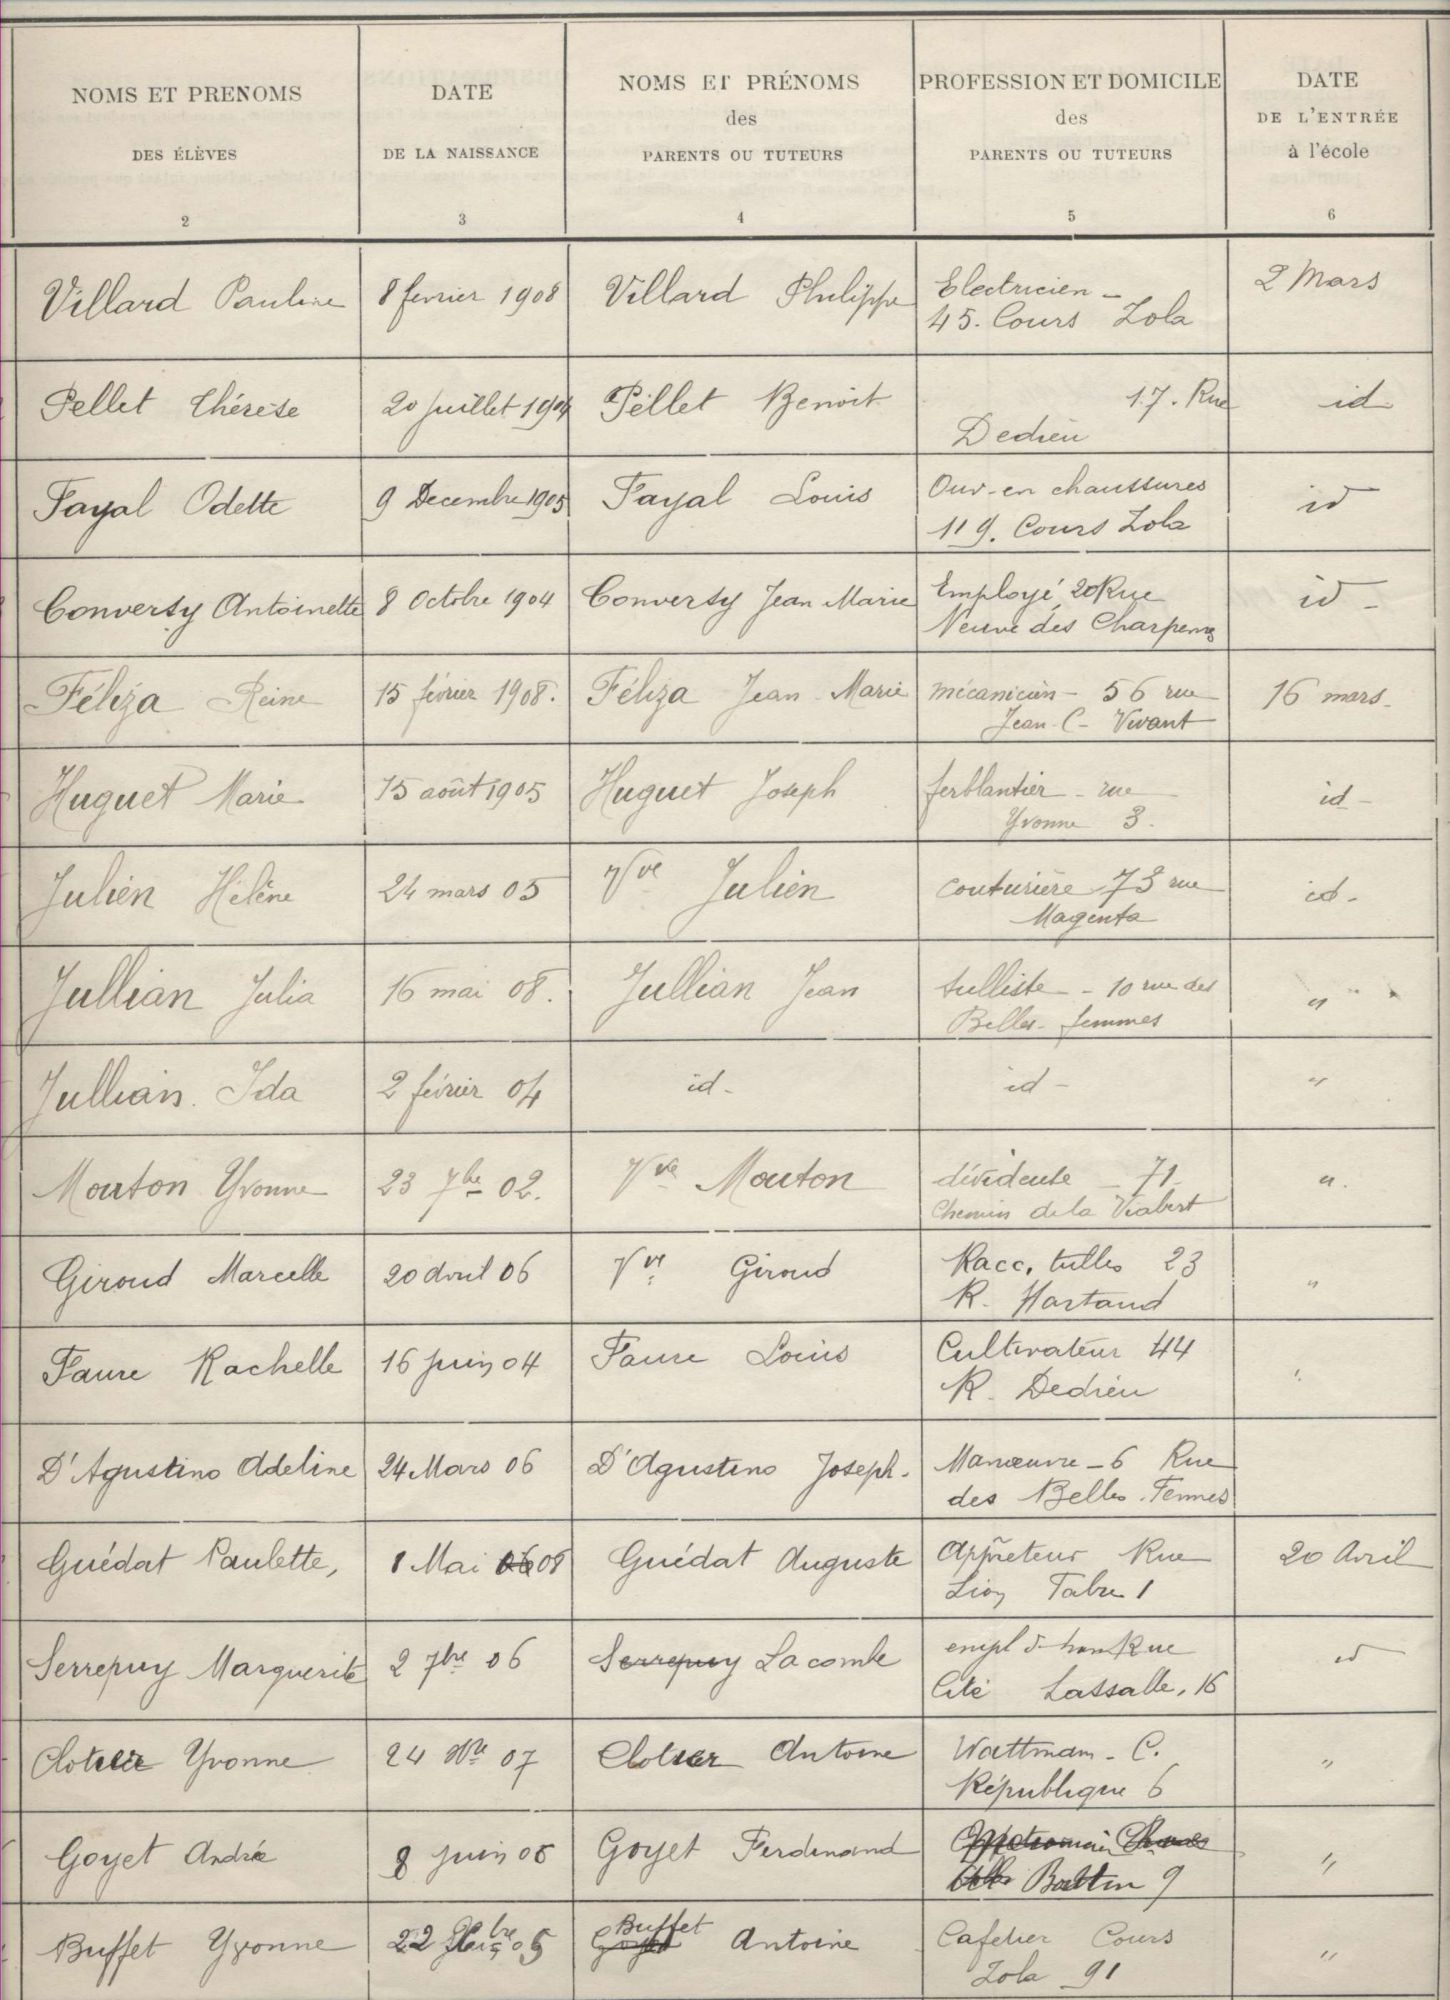 NOMS ET PRENOMS
DES ÉLÈVES
2
DATE
DE LA NAISSANCE
3
NOMS ET PRÉNOMS
des
PARENTS OU TUTEURS
4
PROFESSION ET DOMICILE
des
PARENTS OU TUTEURS
5
DATE
DE L'ENTRÉE
à l'école
6
Villard Pauline
8 fevrier 1908
Villard Philippe
Electricien -
45. Cours Zola
2 Mars
Pellet Thérèse
20 juillet 1904
Pellet Benoit
17. Rue
Dedieu
id
Fayal Odette
9 Decembre 1905
Fayal Louis
Ouv. en chaussures
119. Cours Zola
id
Conversy Antoinette
8 Octobre 1904
Conversy Jean Marie
Employé 20 Rue
Neuve des Charpennes
id -
Féliza Reine
15 février 1908.
Féliza Jean Marie
mécanicien - 56 rue
Jean-C- Vivant
16 mars.
Huguet Marie
15 août 1905
Huguet Joseph
ferblantier - rue
Yvonne 3.
id -
Julien Hélène
24 mars 05
Vve Julien
couturière 73 rue
Magenta
id -
Jullian Julia
16 mai 08.
Jullian Jean
tulliste - 10 rue des
Belles-femmes
"
Jullian. Ida
2 février 04
id -
id -
"
Mouton Yvonne
23 7bre 02.
Vve Mouton
dévideuse - 71
Chemin de la Viabert
".
Giroud Marcelle
20 avril 06
Vve Giroud
Racc. tulles 23
R. Hartaud
"
Faure Rachelle
16 juin 04
Faure Louis
Cultivateur 44
R. Dedieu
"
D'Agustino Adeline
24 Mars 06
D'Agustino Joseph.
Manœuvre - 6 Rue
des Belles. Femmes
Guédat Paulette,
1 Mai 06 08
Guédat Auguste
Apprêteur Rue
Fabre 1
20 Avril
Serrepuy Marguerite
2 7bre 06
Serrepuy Lacombe
empl Rue
Cité Lassalle, 16
id
Yvonne
24 07
Antoine
Wattmam - C.
République 6
"
Goyet Andrée
8 juin 06
Goyet Ferdinand
Battin 9
"
Buffet Yvonne
22 05
Buffet
Goyet Antoine
Cafetier Cours
Zola 91
"